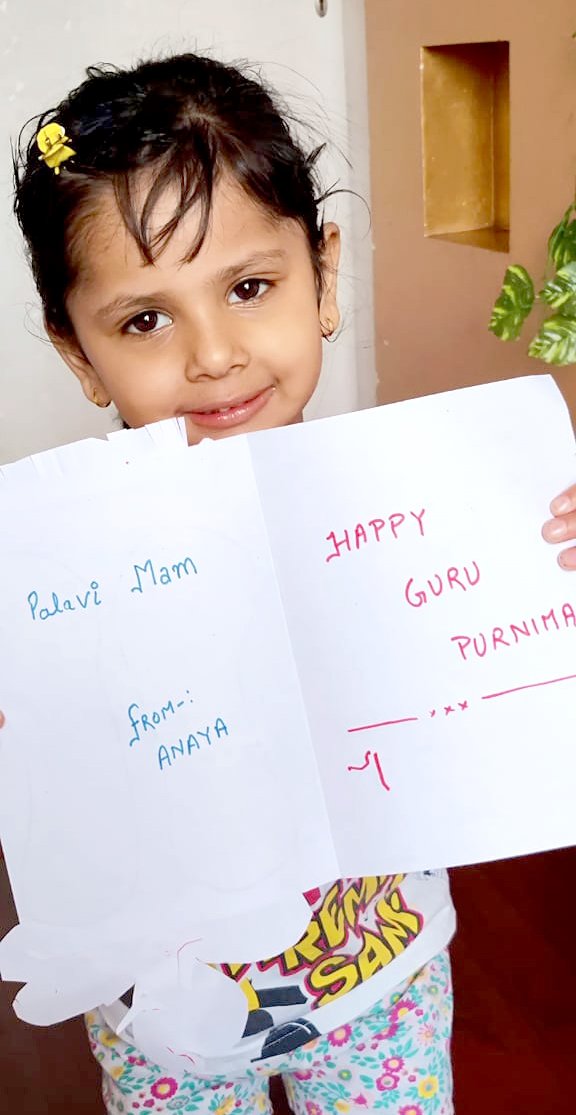 Palavi Mam
FROM-:
ANAYA
HAPPY
GURU
PURNIMA